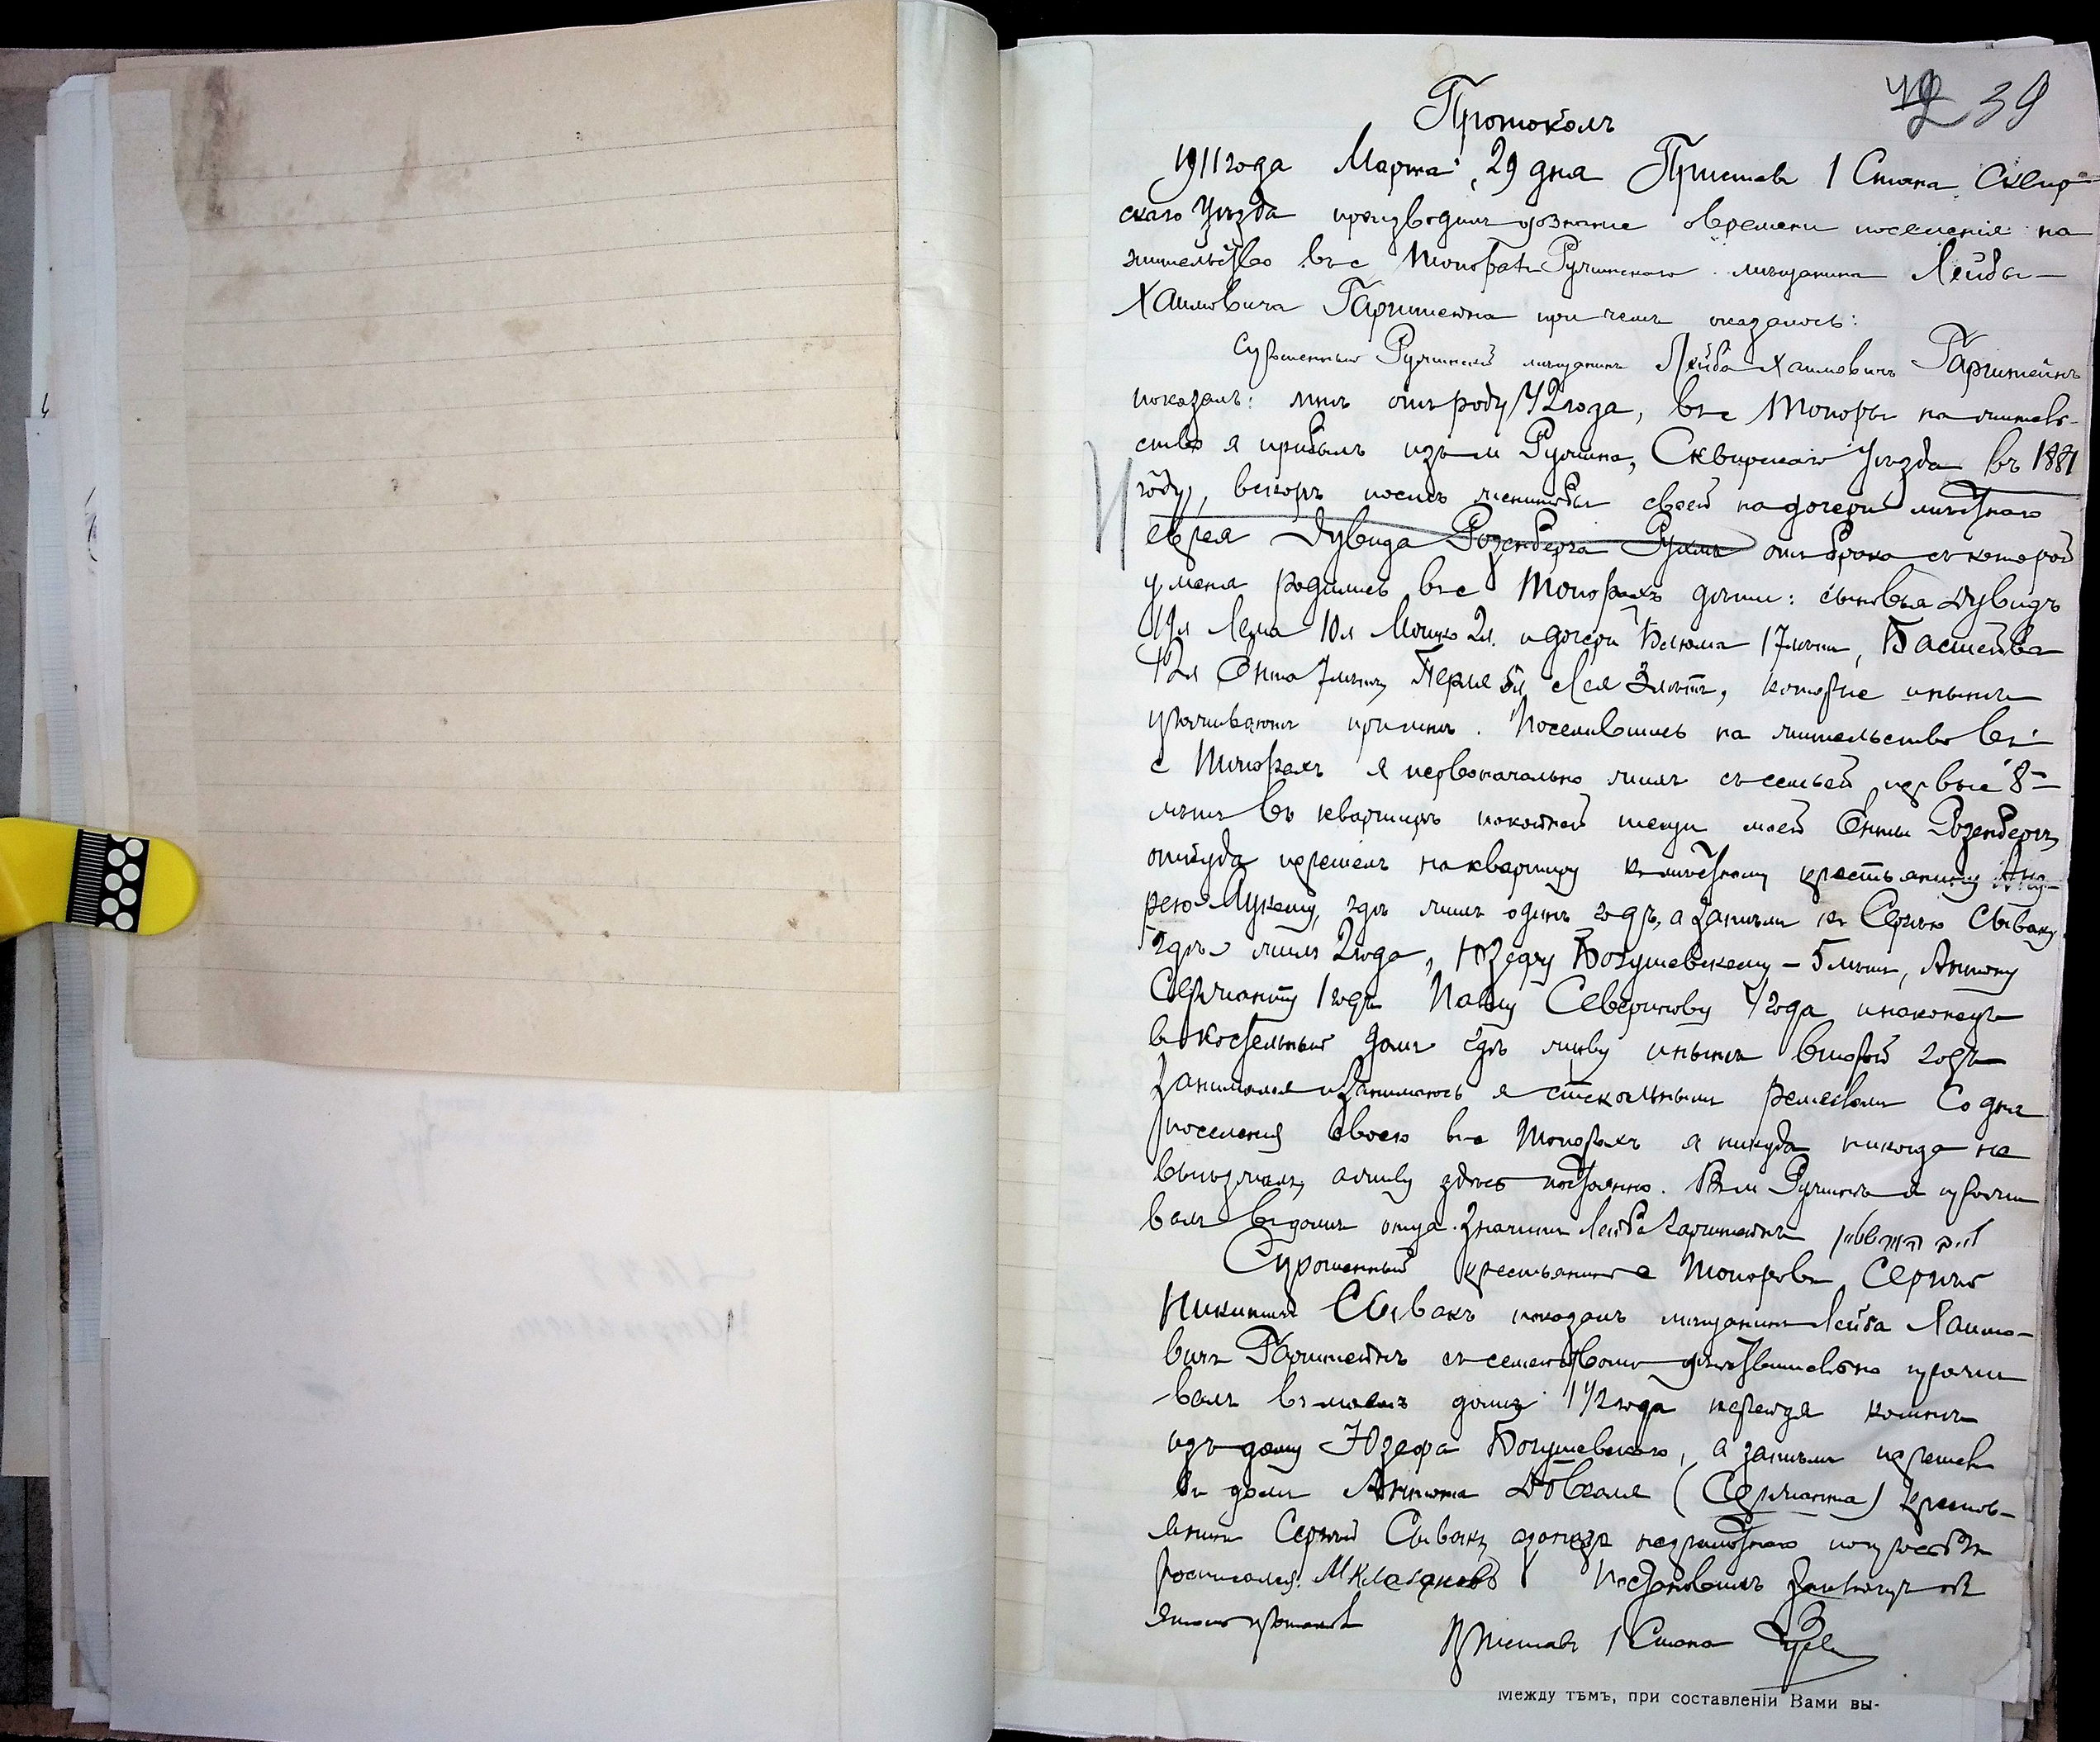 39
Протоколъ
1911 года Марта 29 дня Приставъ 1 Стана Сквир-
скаго Уѣзда производилъ дознаніе о времени поселенія на
жительство въ с Топорахъ Ружинскаго мѣщанина Лейбы
Хаимовича Гарштейна при чемъ оказалось:
Спрошенный Ружинскій мѣщанинъ Лейба Хаимовичъ Гарштейнъ
показалъ: мнѣ отъ роду 42 года, въ с Топоры на житель-
ство я прибылъ изъ м Ружина, Сквирскаго Уѣзда въ 1881
году, вскорѣ послѣ женитьбы своей на дочери мѣстнаго
еврея Дувида Розенберга отъ брака съ которой
у меня родились въ с Топорахъ дѣти: сыновья Дувидъ
19л 10л Мошко 2л. и дочери 17 лѣтъ, Басшейва
12л Ента 7 лѣтъ, Перля 5л Лея 3 лѣтъ, которые и нынѣ
проживаютъ при мнѣ. Поселившись на жительство въ
с Топорахъ я первоначально жилъ съ семьей первые 8
лѣтъ въ квартирѣ покойной тещи моей Енты Розенбергъ,
откуда перешелъ на квартиру къ мѣстному крестьянину Анд-
рею гдѣ жилъ одинъ годъ, а затѣмъ къ Сергѣю Сываку
гдѣ жилъ 2 года, Юзефу Богушевскому – 5 лѣтъ, Антону
Сержанту 1 годъ Павлу Северинову 1/2 года и наконецъ
въ костельный домъ гдѣ живу и нынѣ второй годъ
Занимался и занимаюсь я стекольнымъ ремесломъ Со дня
поселенія своего въ с Топорахъ я никуда никогда не
выѣзжалъ, а живу здѣсь постоянно. Въ м Ружинѣ я прожи
валъ въ домѣ отца. Значитъ Лейба Гарштейнъ
Спрошенный крестьянинъ с Топоровъ Сергѣй
Никитинъ Сывакъ показалъ мѣщанинъ Лейба Хаимо-
вичъ Гарштейнъ съ семействомъ дѣйствительно прожи
валъ въ моемъ домѣ 1 1/2 года перейдя ко мнѣ
изъ дому Юзефа Богушевскаго, а затѣмъ перешелъ
въ домъ Антона Довгаля (Сержанта) кресть-
янинъ Сергѣй Сывакъ, а за него неграмотнаго по просьбѣ
росписался. Постановилъ заключить
этимъ протоколъ
Приставъ 1 Стана
Между тѣмъ, при составленіи Вами вы-